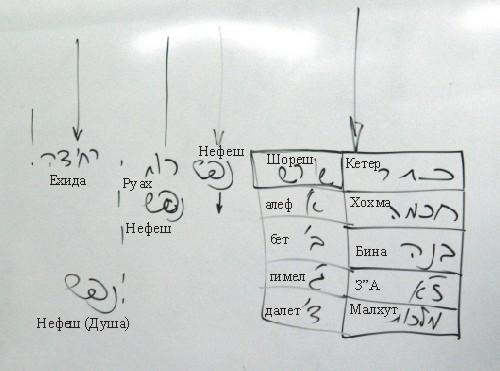 Нефеш
נפש
יחידה
Ехида
רוח
Руах
נפש
Нефеш
נפש
Нефеш (Душа)
Шореш Кетер
שורש כתר
алеф א' Хохма חכמה
бет ב' Бина בינה
гимел ג' З"А ז"א
далет ד' Малхут מלכות